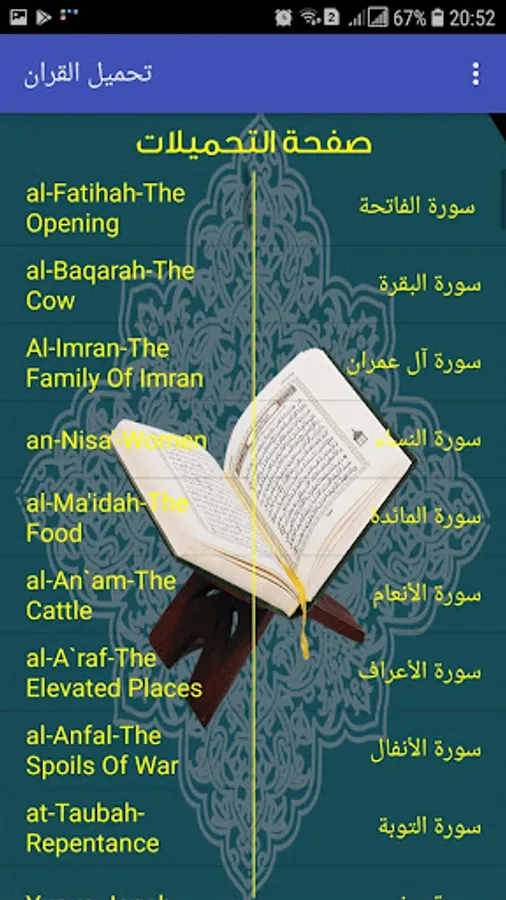 67% 20:52
تحميل القران
صفحة التحميلات
al-Fatihah-The
Opening
سورة الفاتحة
al-Baqarah-The
Cow
سورة البقرة
Al-Imran-The
Family Of Imran
سورة آل عمران
an-Nisa'-Women
سورة النساء
al-Ma'idah-The
Food
سورة المائدة
al-An`am-The
Cattle
سورة الأنعام
al-A`raf-The
Elevated Places
سورة الأعراف
al-Anfal-The
Spoils Of War
سورة الأنفال
at-Taubah-
Repentance
سورة التوبة